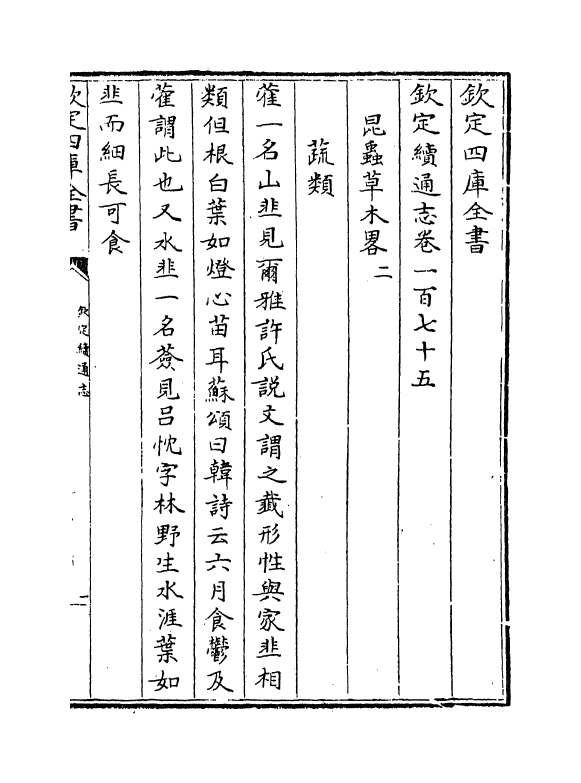 欽定四庫全書
欽定續通志卷一百七十五
昆蟲草木畧二
蔬類
蓷一名山韭見爾雅許氏説文謂之韱形性與家韭相
類但根白葉如燈心苗耳蘇頌曰韓詩云六月食鬱及
蓷謂此也又水韭一名䕬見吕忱字林野生水涯葉如
韭而細長可食
欽定四庫全書
欽定續通志
一